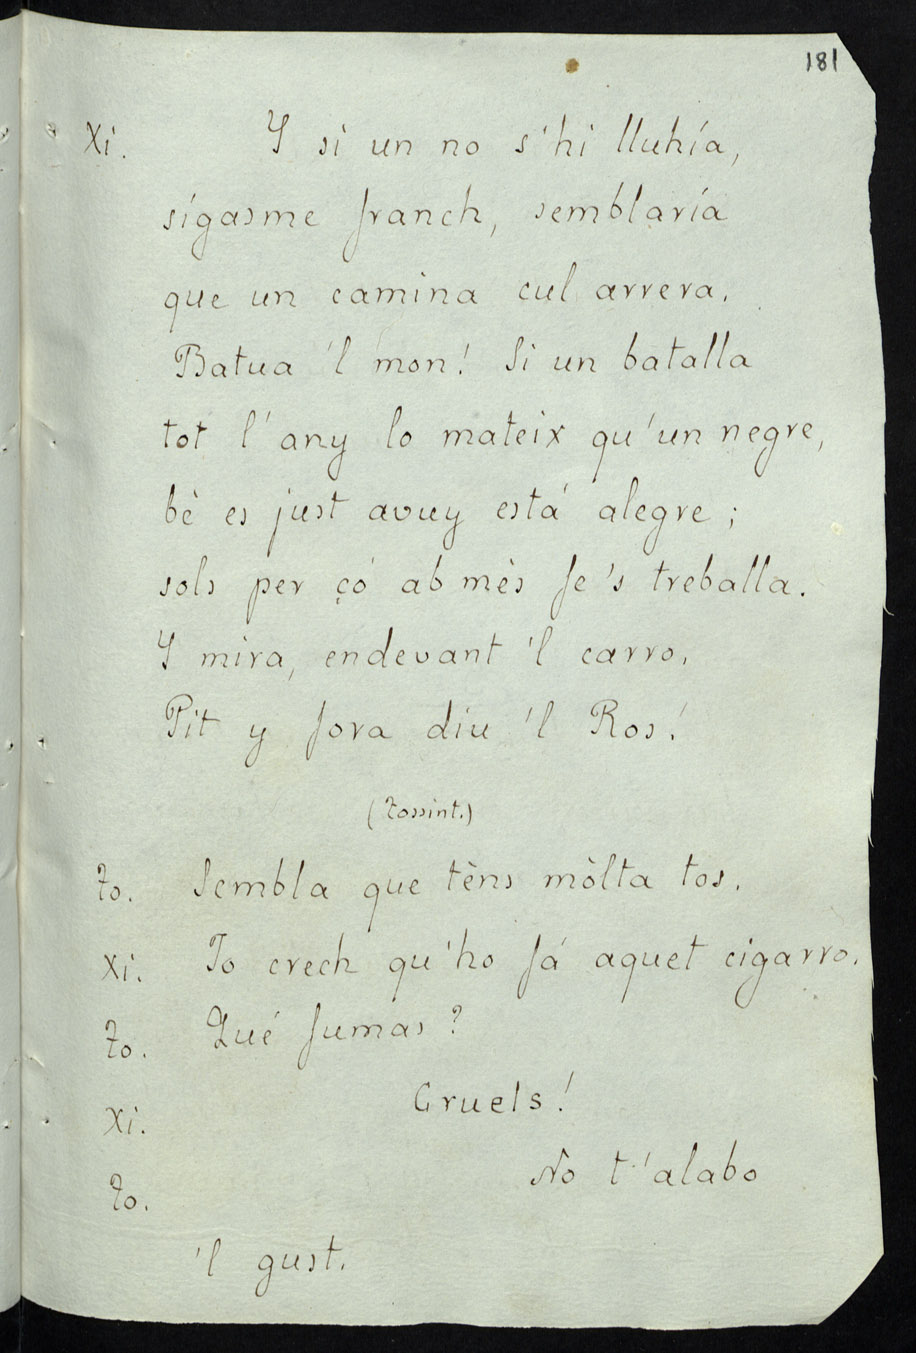 181
Xi. Y si un no s'hi lluhía,
sígasme franch, semblaría
que un camina cul arrera.
Batua 'l mon! Si un batalla
tot l'any lo mateix qu'un negre,
bè es just avuy está alegre;
sols per çó ab mès fe's treballa.
Y mira, endevant 'l carro.
Pit y fora diu 'l Ros!
(Tossint.)
To. Sembla que tèns mòlta tos.
Xi. Jo crech qu'ho fá aquet cigarro.
To. Qué fumas?
Xi. Cruels!
To. No t'alabo
'l gust.